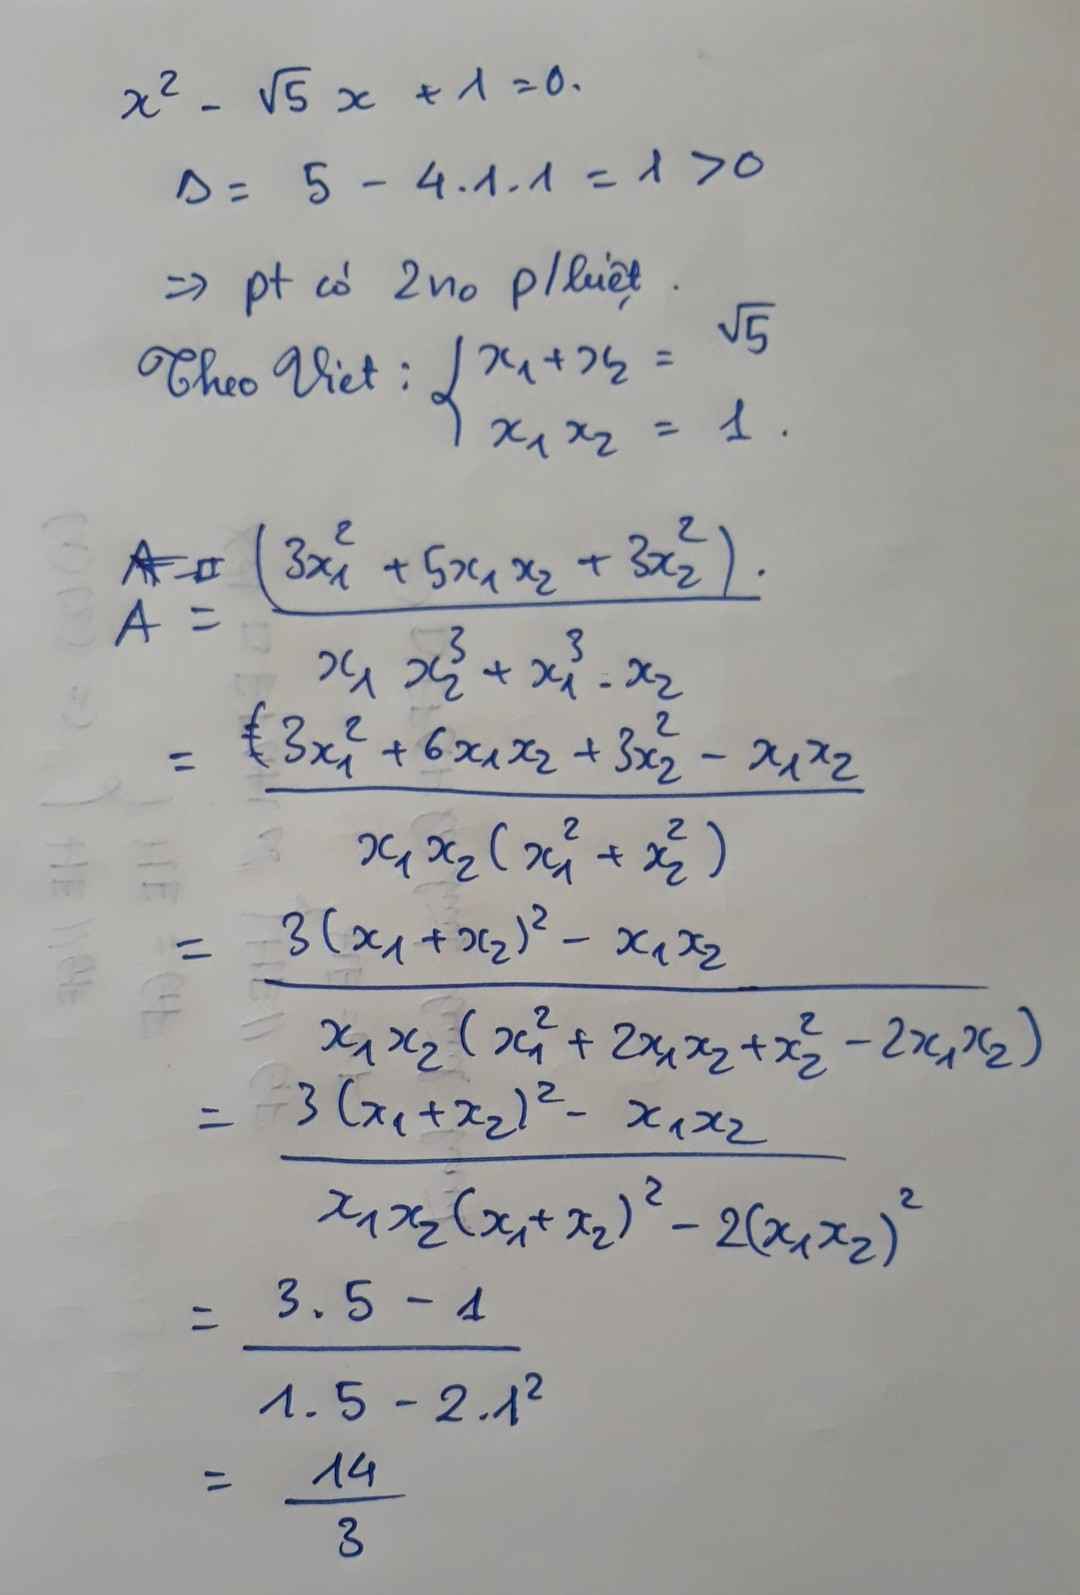 x² - √5 x + 1 = 0.
Δ = 5 - 4.1.1 = 1 > 0
=> pt có 2 no p/biệt.
Theo Viet: { x₁ + x₂ = √5
x₁ x₂ = 1.
A = (3x₁² + 5x₁x₂ + 3x₂²).
x₁ x₂³ + x₁³ . x₂
= 3x₁² + 6x₁x₂ + 3x₂² - x₁x₂
x₁x₂(x₁² + x₂²)
= 3(x₁ + x₂)² - x₁x₂
x₁x₂(x₁² + 2x₁x₂ + x₂² - 2x₁x₂)
= 3(x₁ + x₂)² - x₁x₂
x₁x₂(x₁ + x₂)² - 2(x₁x₂)²
= 3.5 - 1
1.5 - 2.1²
= 14
3